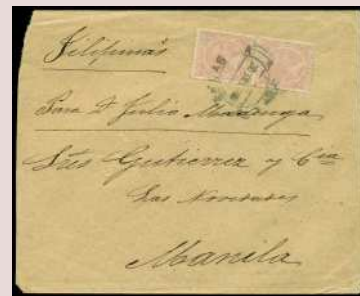 Filipinas
Para D. Julio
Sres Gutierrez y Cia
Las Novedades
Manila